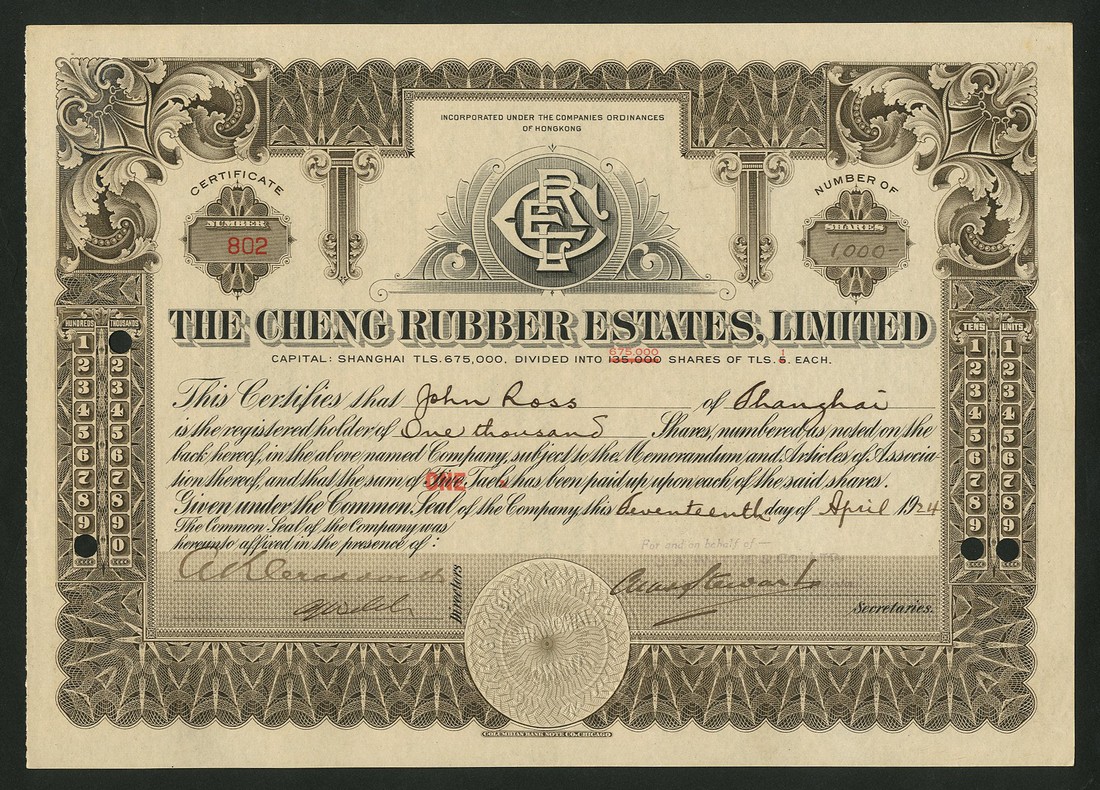 INCORPORATED UNDER THE COMPANIES ORDINANCES
OF HONGKONG
CERTIFICATE
NUMBER
802
CREL
NUMBER OF
SHARES
1000-
THE CHENG RUBBER ESTATES, LIMITED
675,000
CAPITAL: SHANGHAI TLS.675,000, DIVIDED INTO 135,000 SHARES OF TLS.5. EACH.
This Certifies that John Ross of Shanghai
is the registered holder of One thousand Shares, numbered as noted on the
back hereof, in the above named Company, subject to the Memorandum and Articles of Associa-
tion thereof, and that the sum of ONE Five Taels has been paid up upon each of the said shares.
Given under the Common Seal of the Company this Seventeenth day of April 1924
The Common Seal of the Company was
hereunto affixed in the presence of:
For and on behalf of
Directors
Secretaries.
HUNDREDS THOUSANDS
1
2 2
3 3
4 4
5 5
6 6
7 7
8 8
9 9
0
TENS UNITS
1 1
2 2
3 3
4 4
5 5
6 6
7 7
8 8
9 9
COLUMBIAN BANK NOTE CO. CHICAGO